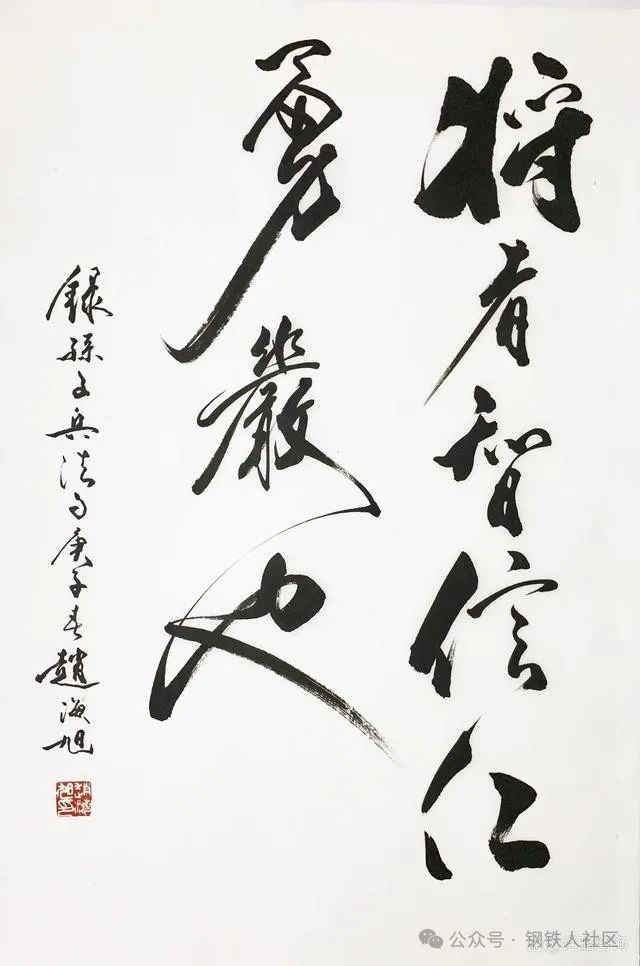 将者智信仁
勇嚴也
録孫子兵法句庚子春趙海旭
公众号 · 钢铁人社区